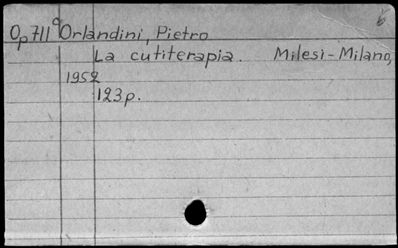 Op711c Orlandini, Pietro
La cutiterapia. Milesi-Milano,
1952
123p.